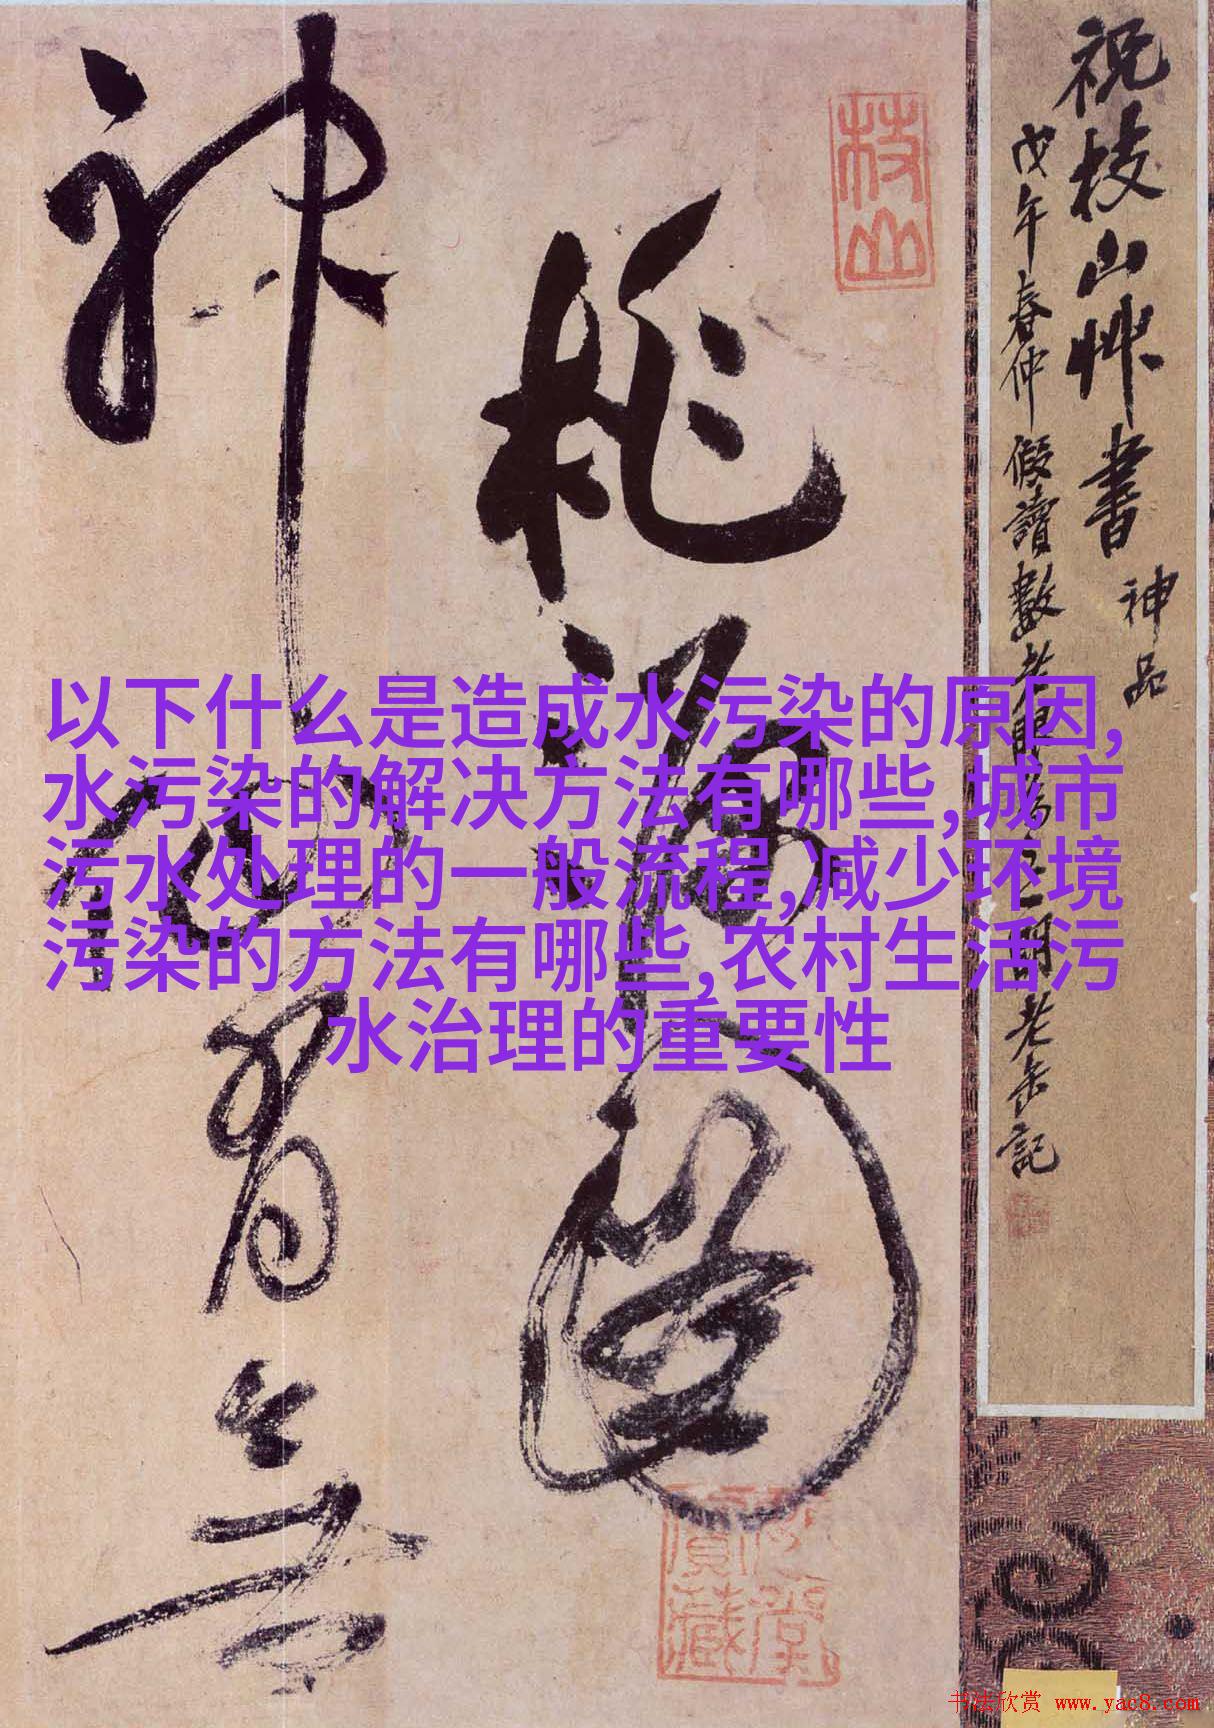 祝枝山艸書 神品
戊午春仲假讀數老眼為之明老缶記
枝山
桃源圖
神仙有無
以下什么是造成水污染的原因,
水污染的解决方法有哪些,城市
污水处理的一般流程,减少环境
污染的方法有哪些,农村生活污
水治理的重要性
书法欣赏 www.yac8.com